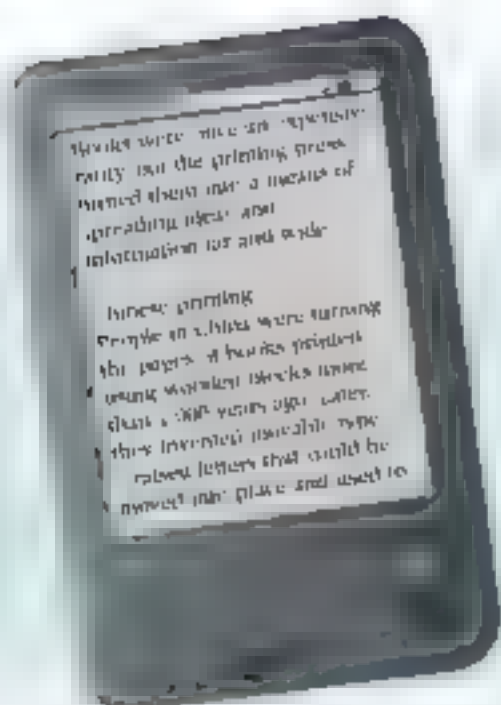 Books were once an expensive
rarity but the printing press
turned them into a means of
spreading ideas and
information far and wide
Chinese printing
People in China were turning
the pages of books printed
using wooden blocks more
than 1,000 years ago. Later,
they invented movable type
raised letters that could be
moved into place and used to